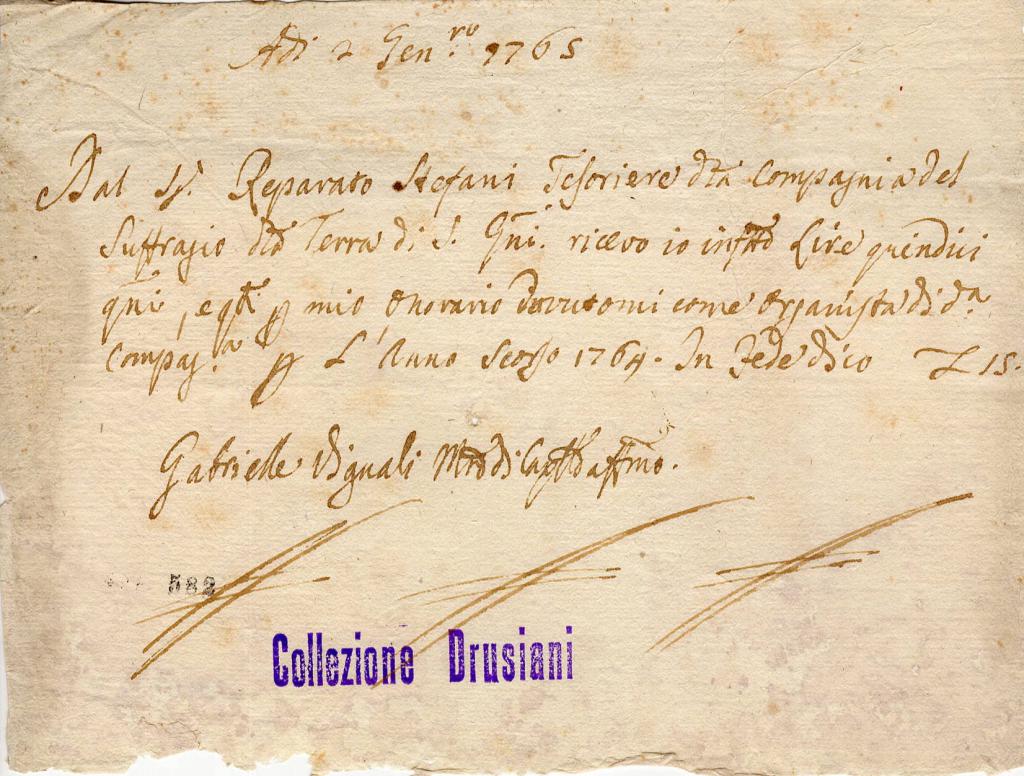 Adi 2 Gen.ro 1765
Dal Sr. Reparato Stefani Tesoriere dta Compagnia del
Suffragio dta Terra di S. Gni. ricevo io infto Lire quindici
qni, e qti p mio onorario dovutomi come Organista di da.
Compag.a p L'Anno Scorso 1764. In Fede dico L 15.
Gabrielle Vignali Mro di Caplla affmo.
582
Collezione Drusiani